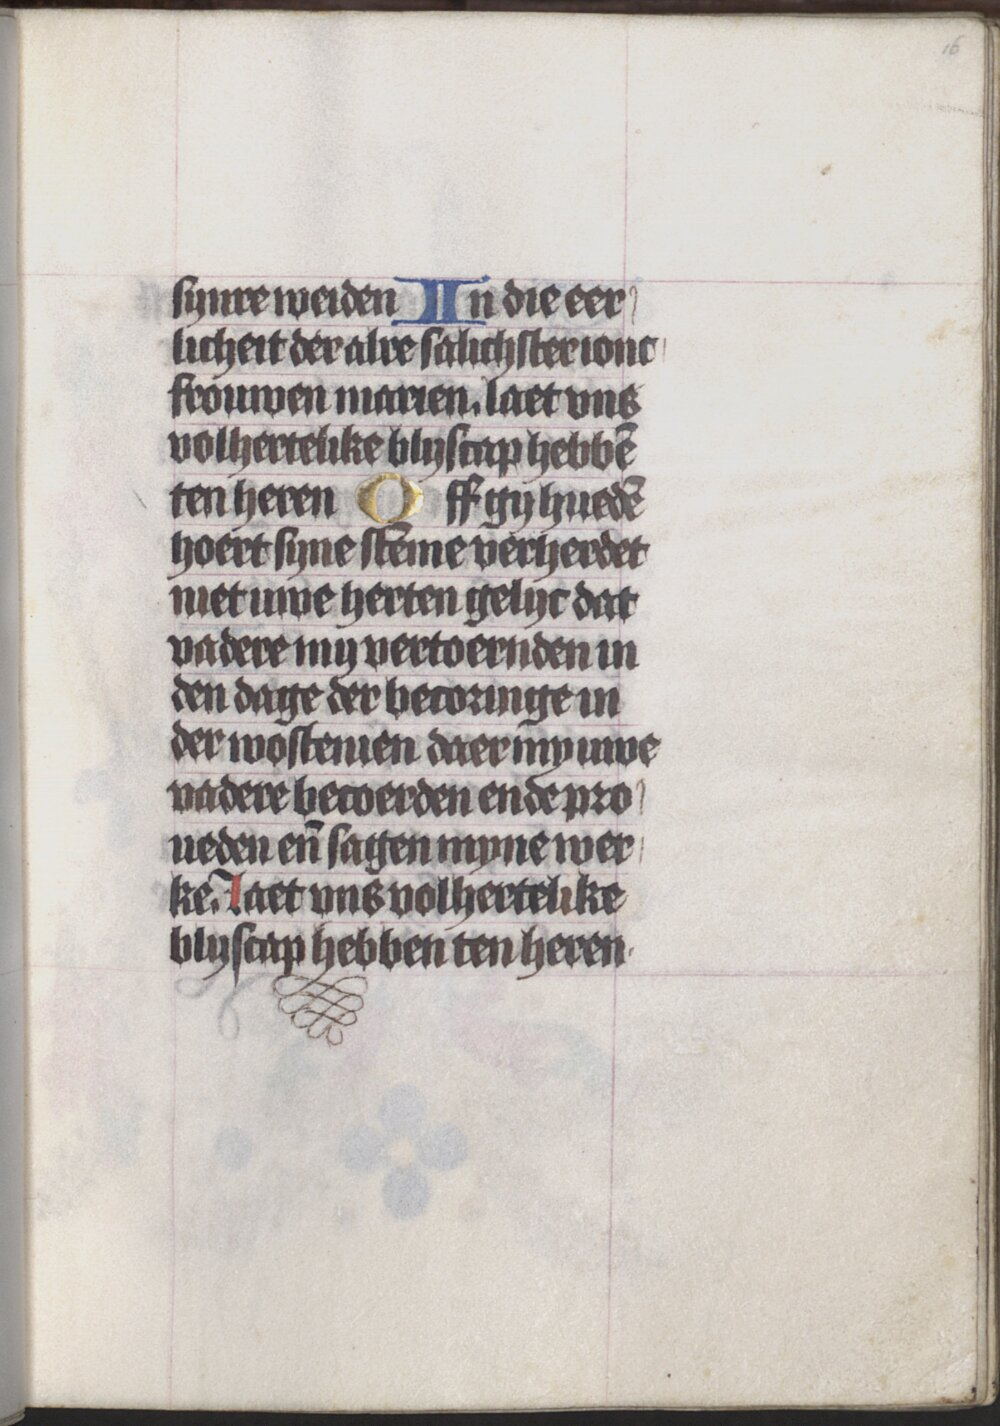 16
synre weiden In die eer
licheit der alre salichster ionc
frouwen marien. laet vns
volhertelike blyscap hebbē
ten heren Off gy huedē
hoert syne stēme verherdet
niet uwe herten gelyc dat
vadere my vertoernden in
den dage der becoringe in
der wostenien daer my uwe
vadere becoerden ende pro
ueden en̄ sagen myne wer
ke. laet vns volhertelike
blyscap hebben ten heren.